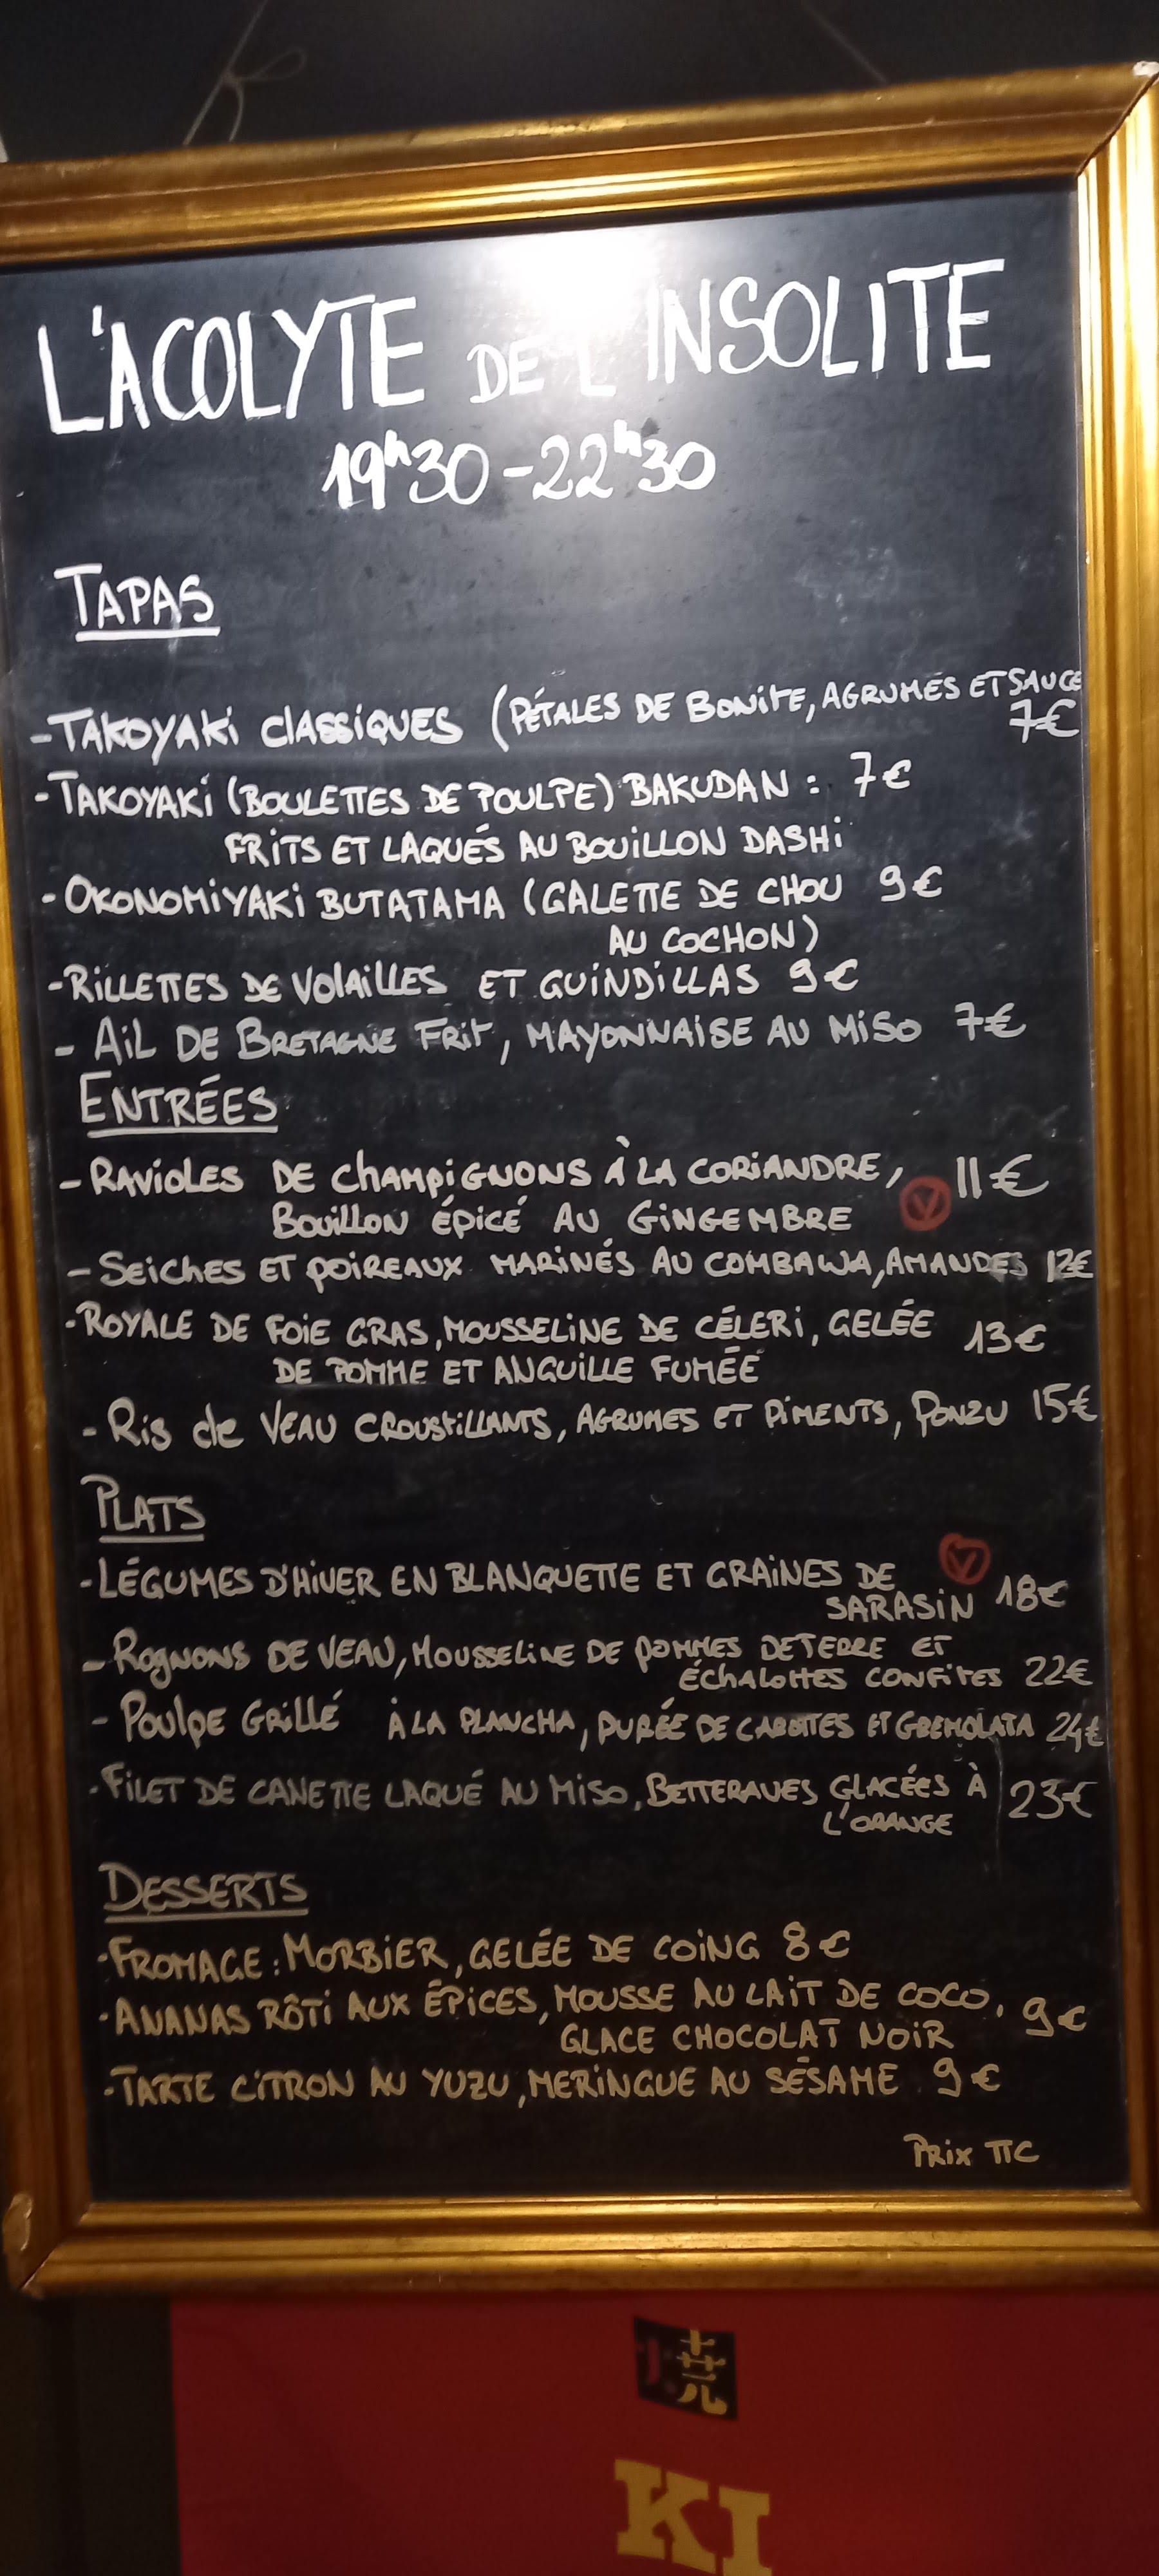 L'ACOLYTE DE L'INSOLITE
19h30-22h30
TAPAS
- TAKOYAKI CLASSIQUES (PÉTALES DE BONITE, AGRUMES ET SAUCE
7€
- TAKOYAKI (BOULETTES DE POULPE) BAKUDAN : 7€
FRITS ET LAQUÉS AU BOUILLON DASHI
- OKONOMIYAKI BUTATAMA (GALETTE DE CHOU 9€
AU COCHON)
- RILLETTES DE VOLAILLES ET GUINDILLAS 9€
- AIL DE BRETAGNE FRIT, MAYONNAISE AU MISO 7€
ENTRÉES
- RAVIOLES DE CHAMPIGNONS À LA CORIANDRE, 11€
BOUILLON ÉPICÉ AU GINGEMBRE V
- SEICHES ET POIREAUX MARINÉS AU COMBAWA, AMANDES 12€
- ROYALE DE FOIE GRAS, MOUSSELINE DE CÉLERI, GELÉE 13€
DE POMME ET ANGUILLE FUMÉE
- RIS de VEAU CROUSTILLANTS, AGRUMES ET PIMENTS, PONZU 15€
PLATS
- LÉGUMES D'HIVER EN BLANQUETTE ET GRAINES DE V
SARASIN 18€
- ROGNONS DE VEAU, MOUSSELINE DE POMMES DE TERRE ET
ÉCHALOTTES CONFITES 22€
- POULPE GRILLÉ À LA PLANCHA, PURÉE DE CAROTTES ET GREMOLATA 24€
- FILET DE CANETTE LAQUÉ AU MISO, BETTERAVES GLACÉES À 23€
L'ORANGE
DESSERTS
- FROMAGE : MORBIER, GELÉE DE COING 8€
- ANANAS RÔTI AUX ÉPICES, MOUSSE AU LAIT DE COCO, 9€
GLACE CHOCOLAT NOIR
- TARTE CITRON AU YUZU, MERINGUE AU SÉSAME 9€
PRIX TTC
焼
KI